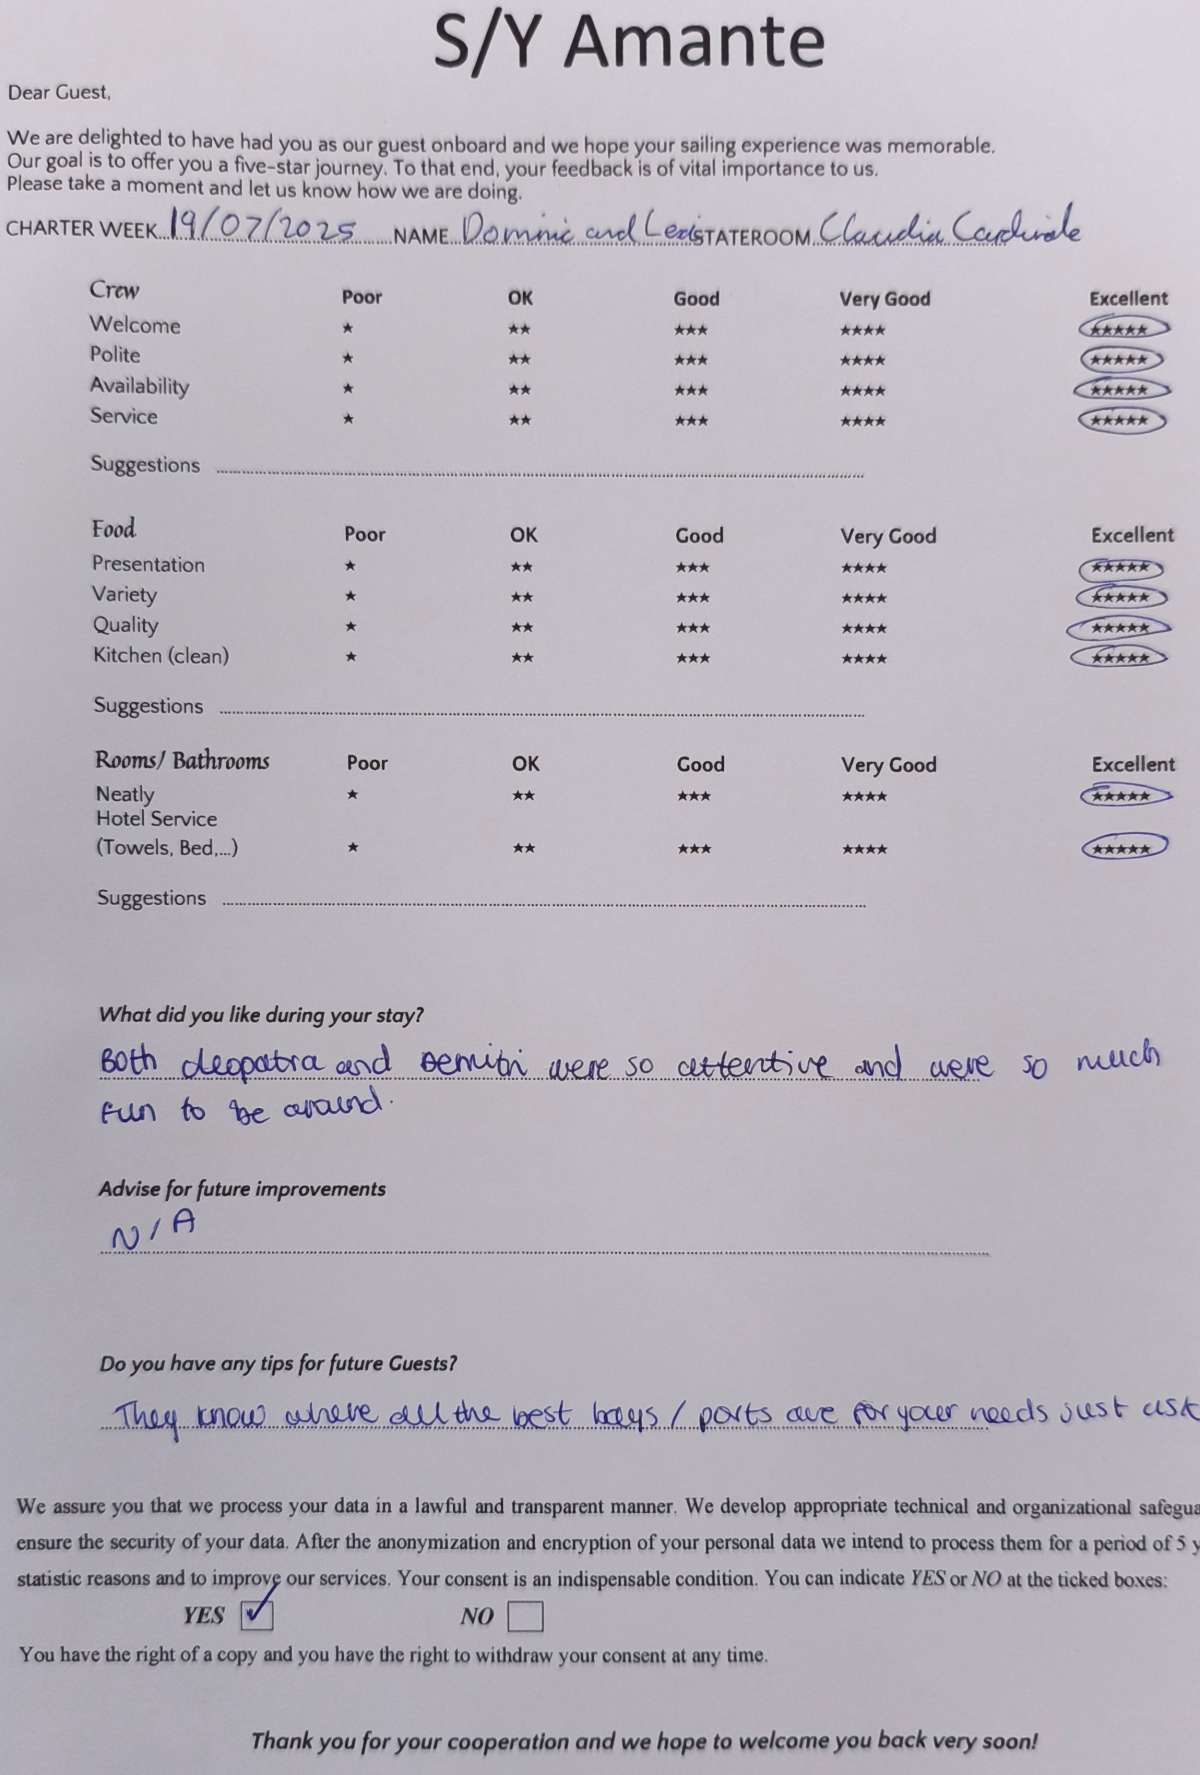 S/Y Amante
Dear Guest,
We are delighted to have had you as our guest onboard and we hope your sailing experience was memorable.
Our goal is to offer you a five-star journey. To that end, your feedback is of vital importance to us.
Please take a moment and let us know how we are doing.
CHARTER WEEK 19/07/2025 NAME Dominic and STATEROOM Claudia Cardinale
Crew Poor OK Good Very Good Excellent
Welcome ★ ★★ ★★★ ★★★★ ★★★★★
Polite ★ ★★ ★★★ ★★★★ ★★★★★
Availability ★ ★★ ★★★ ★★★★ ★★★★★
Service ★ ★★ ★★★ ★★★★ ★★★★★
Suggestions
Food Poor OK Good Very Good Excellent
Presentation ★ ★★ ★★★ ★★★★ ★★★★★
Variety ★ ★★ ★★★ ★★★★ ★★★★★
Quality ★ ★★ ★★★ ★★★★ ★★★★★
Kitchen (clean) ★ ★★ ★★★ ★★★★ ★★★★★
Suggestions
Rooms/ Bathrooms Poor OK Good Very Good Excellent
Neatly ★ ★★ ★★★ ★★★★ ★★★★★
Hotel Service
(Towels, Bed,...) ★ ★★ ★★★ ★★★★ ★★★★★
Suggestions
What did you like during your stay?
Both cleopatra and were so attentive and were so much
fun to be around.
Advise for future improvements
N/A
Do you have any tips for future Guests?
They know where all the best bays / ports are for your needs just ask
We assure you that we process your data in a lawful and transparent manner. We develop appropriate technical and organizational safegua
ensure the security of your data. After the anonymization and encryption of your personal data we intend to process them for a period of 5 y
statistic reasons and to improve our services. Your consent is an indispensable condition. You can indicate YES or NO at the ticked boxes:
YES ✓ NO
You have the right of a copy and you have the right to withdraw your consent at any time.
Thank you for your cooperation and we hope to welcome you back very soon!